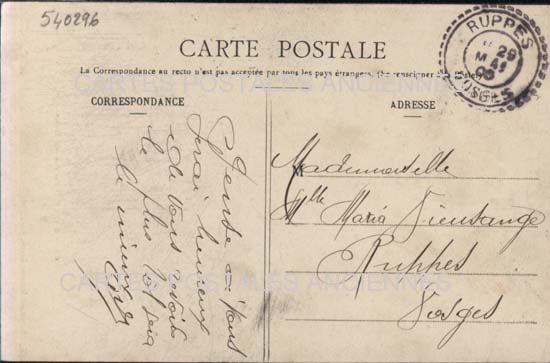 540296
CARTE POSTALE
La Correspondance au recto n'est pas acceptée par tous les pays étrangers. (Se renseigner à la Poste)
CORRESPONDANCE
ADRESSE
RUPPES
29
MAI
VOSGES
CARTES POSTALES ANCIENNES
Pense à vous
serai heureux
de vous revoir
le plus tôt sera
le mieux
Mademoiselle
Mlle Maria
Ruppes
Vosges
CARTES POSTALES ANCIENNES